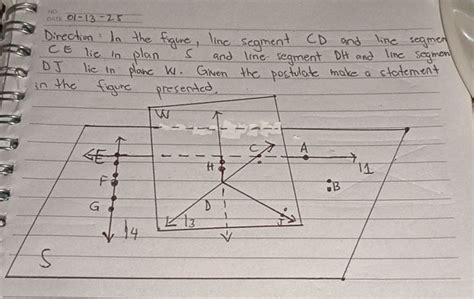 NO.
DATE 01-13-25
Direction: In the figure, line segment CD and line segmen
CE lie in plan S and line segment DH and line segmen
DJ lie in plane W. Given the postulate make a statement
in the figure presented.
W
E
C
A
l1
H
F
B
G
D
l3
J
l4
S